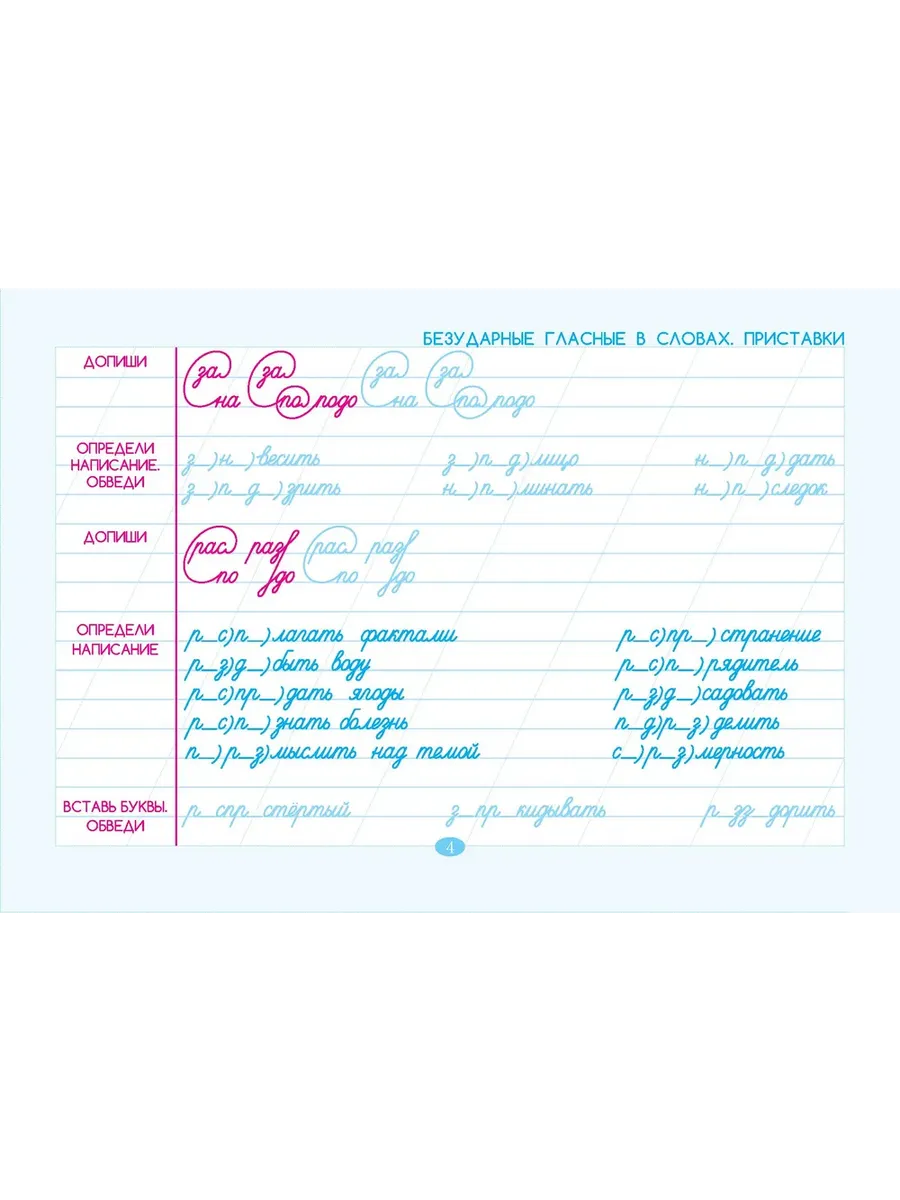 БЕЗУДАРНЫЕ ГЛАСНЫЕ В СЛОВАХ. ПРИСТАВКИ
ДОПИШИ
за за за за
на по подо на по подо
ОПРЕДЕЛИ НАПИСАНИЕ. ОБВЕДИ
з_)н_)весить з_)п_д)лицо н_)п_д)дать
з_)п_д_)зрить н_)п_)минать н_)п_)следок
ДОПИШИ
рас раз рас раз
по до по до
ОПРЕДЕЛИ НАПИСАНИЕ
р_с)п_)лагать фактами р_с)пр_)странение
р_з)д_)быть воду р_с)п_)рядитель
р_с)пр_)дать ягоды р_з)д_)садовать
р_с)п_)знать болезнь п_д)р_з)делить
п_)р_з)мыслить над темой с_)р_з)мерность
ВСТАВЬ БУКВЫ. ОБВЕДИ
р_спр_стёртый з_пр_кидывать р_зз_дорить
4